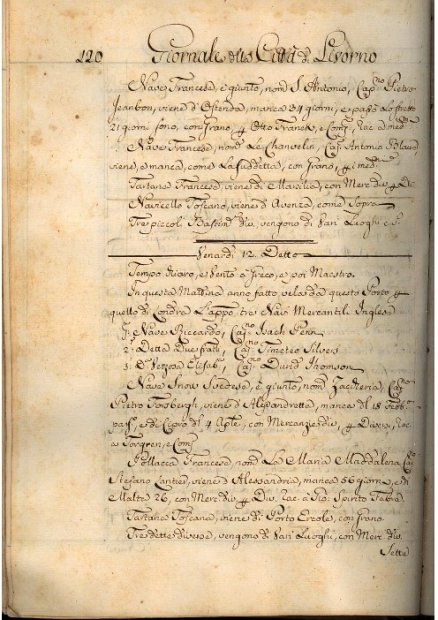 120 Giornale della Città di Livorno
Nave Francese, è giunto, nom.ᵃ S. Antonio, Cap.ⁿᵒ Pietro
viene d' Ostenda, manca 34 giorni, e passò lo stretto
21 giorni sono, con Grano, p Otto Franck, e Comp.
Nave Francese, nom.ᵃ Le Chauvelin, Cap. Antonio
viene, e manca, come la suddetta, con Grano, p i med.
Tartana Francese, viene di Marsilia, con Merc. div. p
Navicello Toscano, viene d' Avenza, come Sopra
Tre piccoli Bastim. div. vengono di Vari Luoghi e
Venerdì 12. Detto
Tempo chiaro, e Vento a Greco, e poi Maestro.
In questa Mattina anno fatto vela da questo Porto p
quello di Londra l'appo. tre Navi Mercantili Inglesi
Nave Riccardo, Cap.ⁿᵒ Penn
2ᵃ Detta Due fratelli, Cap.ⁿᵒ Timoteo Silvers
3ᵃ D.ᵃ Elisab., Cap.ⁿᵒ David Thomson
Nave Snow Svedese, è giunto, nom.ᵃ Zaccheria, Cap.ⁿᵒ
Pietro viene d' Alessandretta, manca dl 18 Febb.
pass., e di Cipro dl 4 Aple, con Mercanzie div., p Diversi, Rac.
a Torgren, e Comp.
Pollacca Francese, nom.ᵃ La Maria Maddalena Cap.
Stefano viene d' Alessandria, manca 56 giorni, e di
Malta 26, con Merc. div. p Div. Rac. a Gio. Spirito
Tartana Toscana, viene di Porto Ercole, con Grano
Tre dette diverse, vengono di Vari Luoghi, con Merc. div.
Sette